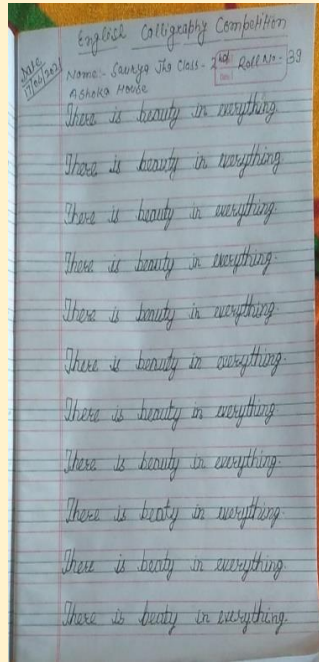 English Calligraphy Competition
Date
17/06/2021
Name:- Saurya Jha Class- 2nd Roll No:- 39
Ashoka House
There is beauty in everything.
There is beauty in everything.
There is beauty in everything.
There is beauty in everything.
There is beauty in everything.
There is beauty in everything.
There is beauty in everything.
There is beauty in everything.
There is beaty in everything.
There is beaty in everything.
There is beaty in everything.